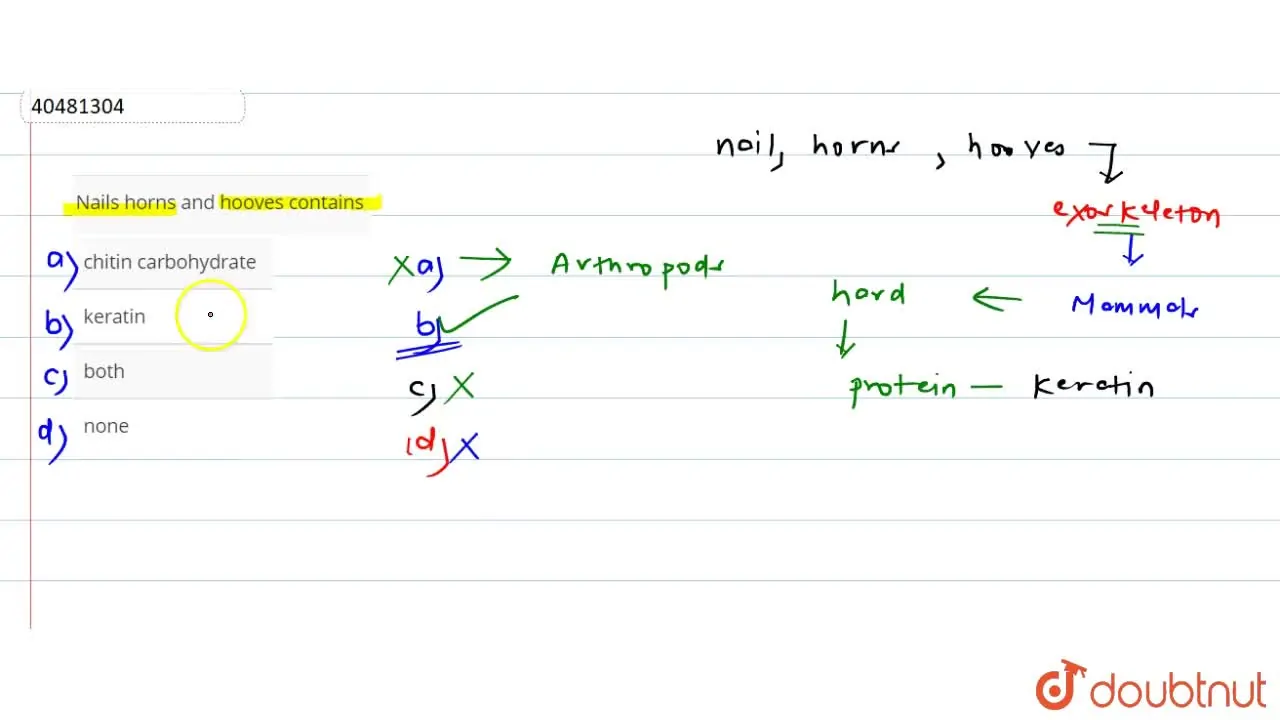 40481304
nail, horns, hooves
Nails horns and hooves contains
exorkeleton
a) chitin carbohydrate
X a) → Arthropods
hard ← Mammals
b) keratin
b) ✓
c) both
c) X
protein — Keratin
d) none
(d) X
doubtnut